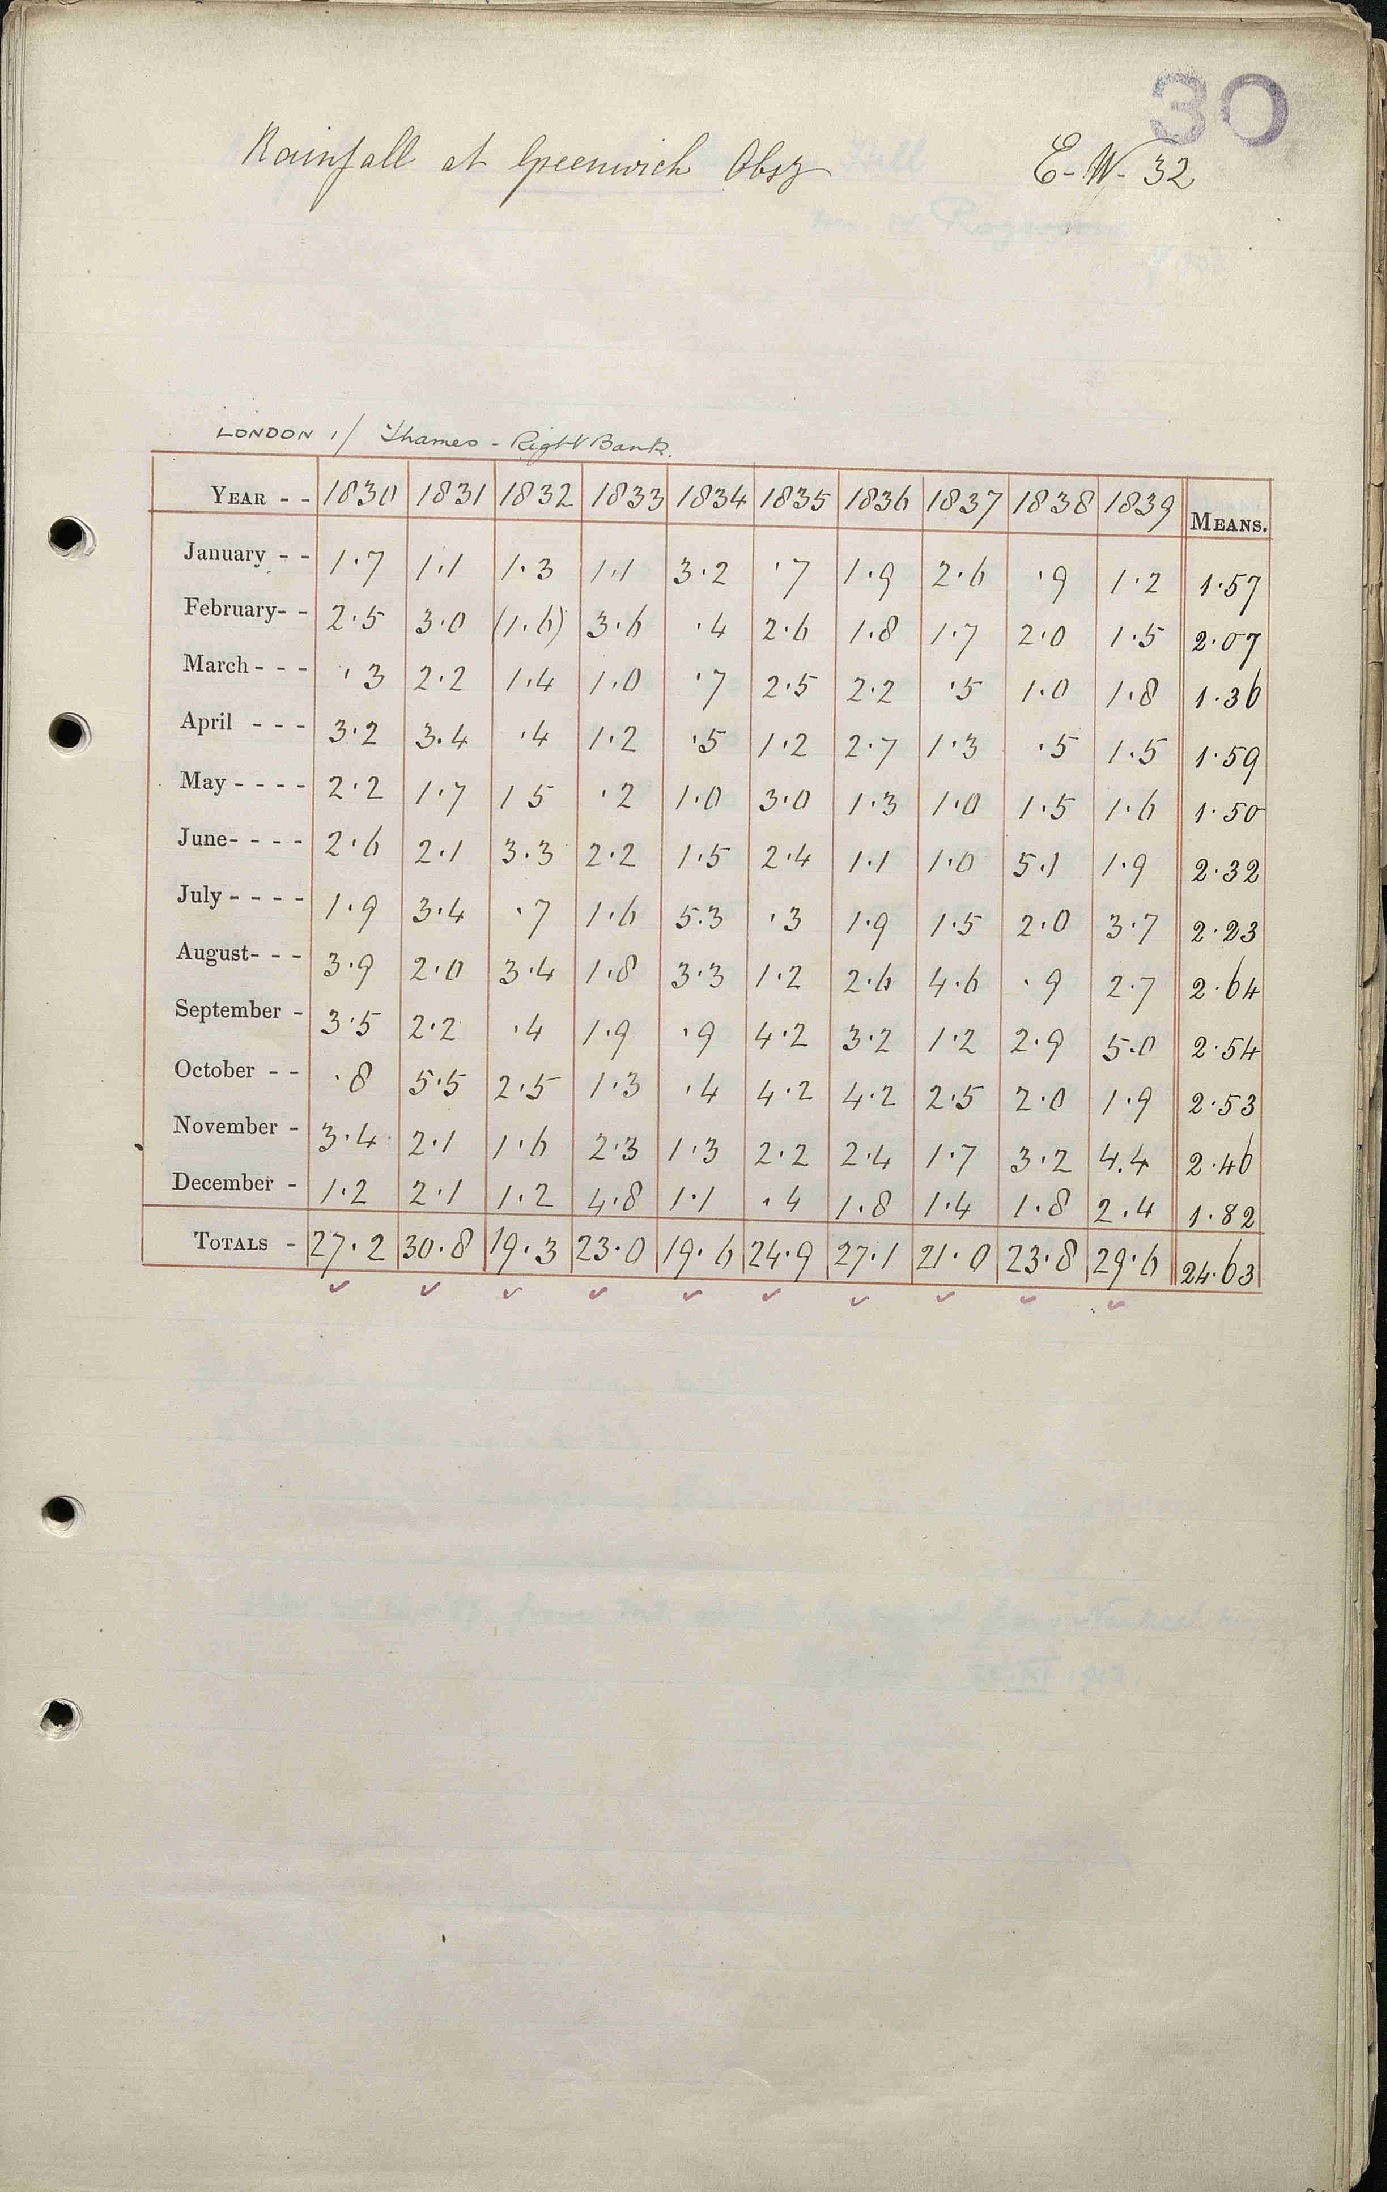 30
Rainfall at Greenwich Obsy E-W-32
LONDON 1/ Thames - Right Bank.
YEAR - - 1830 1831 1832 1833 1834 1835 1836 1837 1838 1839 MEANS.
January - - 1·7 1·1 1·3 1·1 3·2 ·7 1·9 2·6 ·9 1·2 1·57
February- - 2·5 3·0 (1·6) 3·6 ·4 2·6 1·8 1·7 2·0 1·5 2·07
March - - - ·3 2·2 1·4 1·0 ·7 2·5 2·2 ·5 1·0 1·8 1·36
April - - - 3·2 3·4 ·4 1·2 ·5 1·2 2·7 1·3 ·5 1·5 1·59
May - - - - 2·2 1·7 1 5 ·2 1·0 3·0 1·3 1·0 1·5 1·6 1·50
June- - - - 2·6 2·1 3·3 2·2 1·5 2·4 1·1 1·0 5·1 1·9 2·32
July - - - - 1·9 3·4 ·7 1·6 5·3 ·3 1·9 1·5 2·0 3·7 2·23
August- - - 3·9 2·0 3·4 1·8 3·3 1·2 2·6 4·6 ·9 2·7 2·64
September - 3·5 2·2 ·4 1·9 ·9 4·2 3·2 1·2 2·9 5·0 2·54
October - - ·8 5·5 2·5 1·3 ·4 4·2 4·2 2·5 2·0 1·9 2·53
November - 3·4 2·1 1·6 2·3 1·3 2·2 2·4 1·7 3·2 4·4 2·46
December - 1·2 2·1 1·2 4·8 1·1 ·4 1·8 1·4 1·8 2·4 1·82
TOTALS - 27·2 30·8 19·3 23·0 19·6 24·9 27·1 21·0 23·8 29·6 24·63